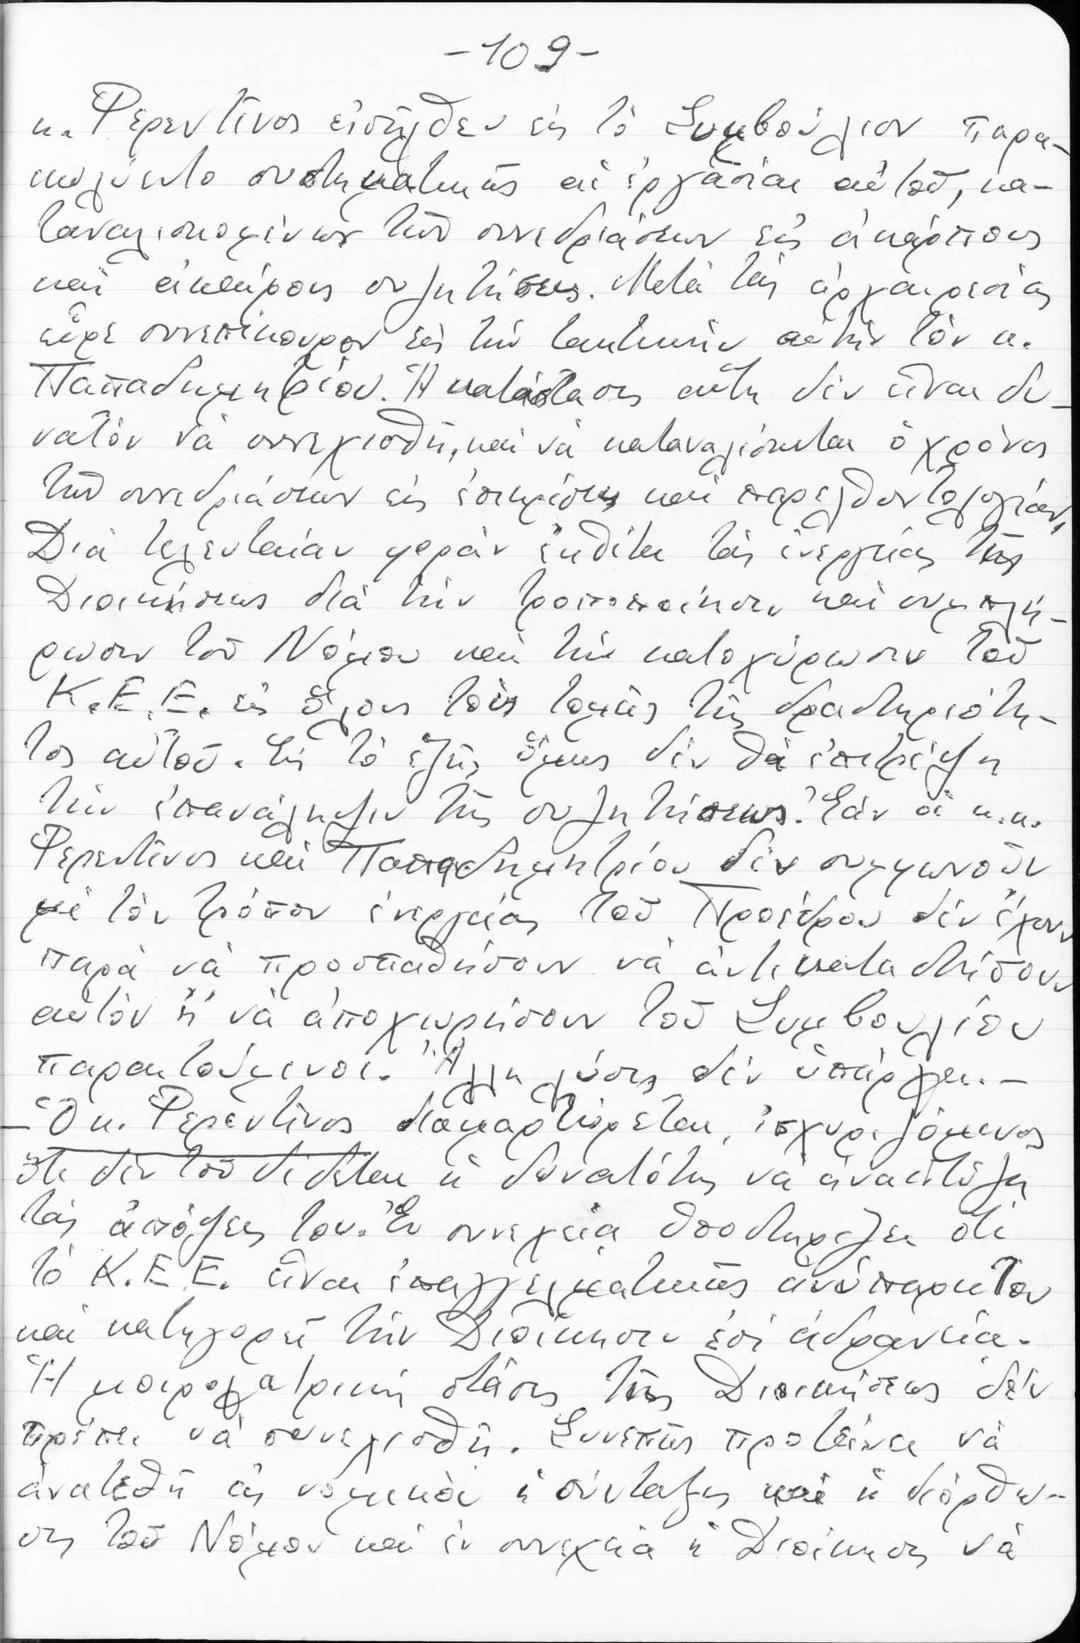 -109-
κ. Φερεντῖνος εἰσῆλθεν εἰς τὸ Συμβούλιον παρα-
κωλύεντο συστηματικῶς αἱ ἐργασίαι αὐτοῦ, κα-
ταναλισκομένων τῶν συνεδριάσεων εἰς ἀκάρπους
καὶ ἀκαίρους συζητήσεις. Μετὰ τὰς ἀρχαιρεσίας
εὗρε συνεπίκουρον εἰς τὴν τακτικὴν αὐτὴν τὸν κ.
Παπαδημητρίου. Ἡ κατάστασις αὕτη δὲν εἶναι δυ-
νατὸν νὰ συνεχισθῆ, καὶ νὰ καταναλίσκεται ὁ χρόνος
τῶν συνεδριάσεων εἰς ἐπικρίσεις καὶ παρελθοντολογίαν,
Διὰ τελευταίαν φορὰν ἐκθέτει τὰς ἐνεργείας τῆς
Διοικήσεως διὰ τὴν τροποποίησιν καὶ συμπλή-
ρωσιν τοῦ Νόμου καὶ τὴν κατοχύρωσιν τοῦ
Κ.Ε.Ε. εἰς ὅλους τοὺς τομεῖς τῆς δραστηριότη-
τος αὐτοῦ. Εἰς τὸ ἑξῆς ὅμως δὲν θὰ ἐπιτρέψη
τὴν ἐπανάληψιν τῆς συζητήσεως. Ἐὰν οἱ κ.κ.
Φερεντῖνος καὶ Παπαδημητρίου δὲν συμφωνοῦν
μὲ τὸν τρόπον ἐνεργείας τοῦ Προέδρου δὲν ἔχουν
παρὰ νὰ προσπαθήσουν νὰ ἀντικαταστήσουν
αὐτὸν ἢ νὰ ἀποχωρήσουν τοῦ Συμβουλίου
παραιτούμενοι. Ἄλλη λύσις δὲν ὑπάρχει.-
-Ὁ κ. Φερεντῖνος διαμαρτύρεται, ἰσχυριζόμενος
ὅτι δὲν τοῦ δίδεται ἡ δυνατότης νὰ ἀναπτύξη
τὰς ἀπόψεις του. Ἐν συνεχείᾳ ὑποστηρίζει ὅτι
τὸ Κ.Ε.Ε. εἶναι ἐπαγγελματικῶς ἀνύπαρκτον
καὶ κατηγορεῖ τὴν Διοίκησιν ἐπὶ ἀδρανείᾳ.
Ἡ μοιρολατρικὴ στάσις τῆς Διοικήσεως δὲν
πρέπει νὰ συνεχισθῆ. Συνεπῶς προτείνει νὰ
ἀνατεθῆ εἰς νομικὸν ἡ σύνταξις καὶ ἡ διόρθω-
σις τοῦ Νόμου καὶ ἐν συνεχείᾳ ἡ Διοίκησις νὰ